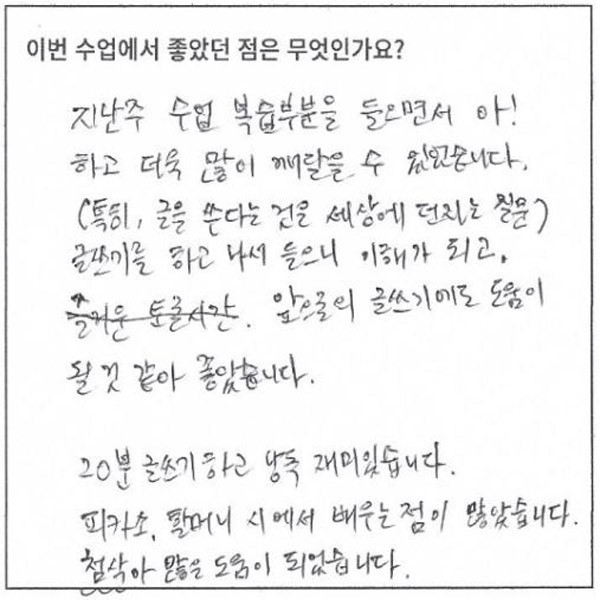 이번 수업에서 좋았던 점은 무엇인가요?
지난주 수업 복습부분을 들으면서 아!
하고 더욱 많이 깨달을 수 있었습니다.
(특히, 글을 쓴다는 것은 세상에 던지는 질문)
글쓰기를 하고 나서 들으니 이해가 되고,
즐거운 토글시간. 앞으로의 글쓰기에도 도움이
될 것 같아 좋았습니다.
20분 글쓰기 하고 낭독 재미있습니다.
피카소, 할머니 시에서 배우는 점이 많았습니다.
첨삭이 많은 도움이 되었습니다.